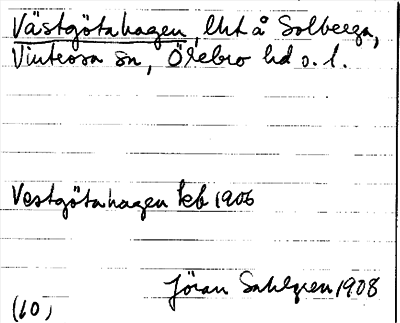 Västgötahagen, lht å Solberga,
Vintrosa sn, Örebro hd o. l.
Vestgötahagen kb 1906
Jöran Sahlgren 1908
(60)